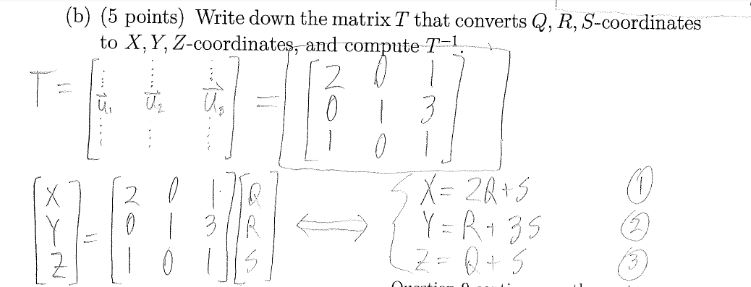 (b) (5 points) Write down the matrix T that converts Q, R, S-coordinates
to X, Y, Z-coordinates, and compute T⁻¹.
T = [u⃗₁ u⃗₂ u⃗₃] = [2 0 1
0 1 3
1 0 1]
[X
Y
Z] = [2 0 1
0 1 3
1 0 1] [Q
R
S] ⟺ { X = 2Q + S ①
Y = R + 3S ②
Z = Q + S ③